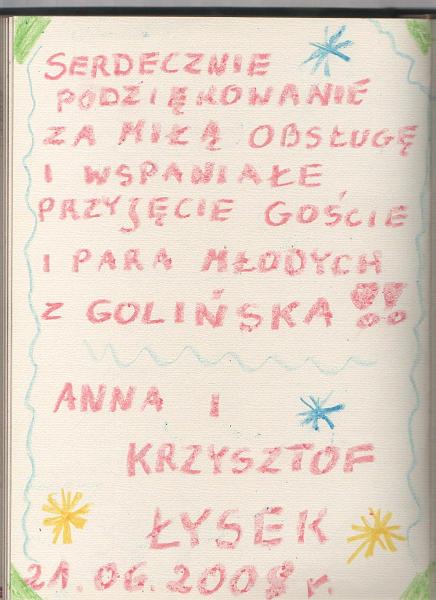 SERDECZNIE
PODZIĘKOWANIE
ZA MIŁĄ OBSŁUGĘ
I WSPANIAŁE
PRZYJĘCIE GOŚCIE
I PARA MŁODYCH
Z GOLIŃSKA!!
ANNA I
KRZYSZTOF
ŁYSEK
21.06.2008 r.